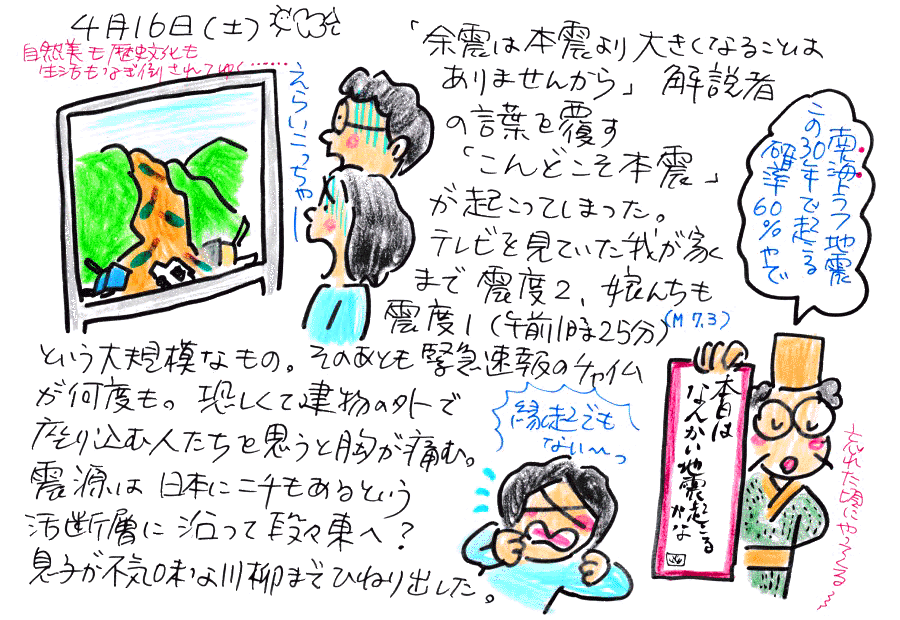 4月16日(土)
自然美も歴史文化も
生活もなぎ倒されてゆく……
えらいこっちゃー
「余震は本震より大きくなることは
ありませんから」解説者
の言葉を覆す
「こんどこそ本震」
が起こってしまった。
テレビを見ていた我が家
まで震度2、娘んちも
震度1(午前1時25分)
(M7.3)
という大規模なもの。そのあとも緊急速報のチャイム
が何度も。恐しくて建物の外で
座り込む人たちを思うと胸が痛む。
震源は日本に二千もあるという
活断層に沿って段々東へ?
息子が不気味な川柳までひねり出した。
縁起でも
ない〜っ
南海トラフ地震
この30年で起こる
確率60%やで
本日は
なんかい地震起こる
かな
忘れた頃にやってくる〜